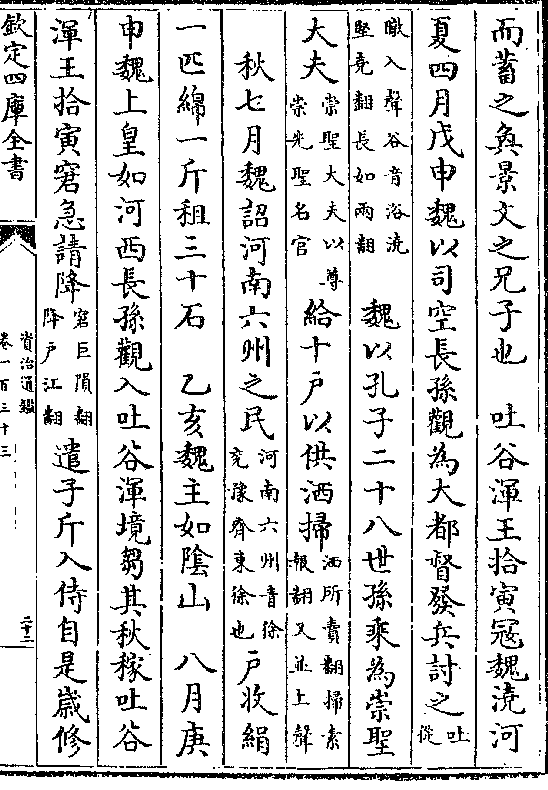 而蓄之奐景文之兄子也　吐谷渾王拾寅寇魏澆河
夏四月戊申魏以司空長孫觀為大都督發兵討之吐從
暾入聲谷音浴澆堅堯翻長如兩翻　魏以孔子二十八世孫乘為崇聖
大夫崇聖大夫以尊崇先聖名官給十戶以供洒掃洒所賣翻掃素報翻又並上聲
秋七月魏詔河南六州之民河南六州青徐兗豫齊東徐也戶收絹
一匹綿一斤租三十石　乙亥魏主如陰山　八月庚
申魏上皇如河西長孫觀入吐谷渾境芻其秋稼吐谷
渾王拾寅窘急請降窘巨隕翻降戶江翻遣子斤入侍自是歲修
欽定四庫全書
資治通鑑
卷一百三十三
二十二